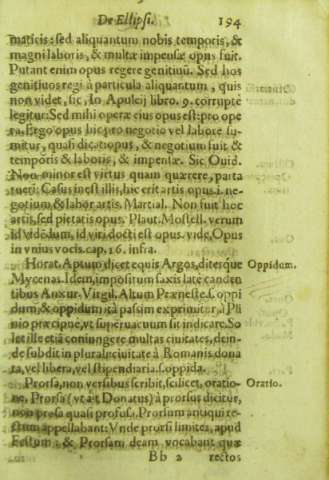 De Ellipsi. 194
maticis: sed aliquantum nobis temporis, &
magni laboris, & multæ impensæ opus fuit.
Putant enim opus regere genitiuū. Sed hos
genitiuos regi à particula aliquantum, quis
non videt, sic, Io Apuleij libro. 9. corrupte
legitur: Sed mihi operæ eius opus est: pro ope
ra, Ergo opus hic pro negotio vel labore su-
mitur, quasi dicat opus, & negotium fuit &
temporis & laboris, & impensæ. Sic Ouid.
Non minor est virtus quam quærere, parta
tueri: Casus inest illis, hic erit artis opus. i. ne-
gotium, & labor artis. Martial. Non fuit hoc
artis, sed pietatis opus. Plaut. Mostell. verum
id vidēdum, id viri docti est opus. vide, Opus
in vnius vocis. cap, 16. infra.
Horat. Aptum dicet equis Argos, ditesque Oppidum.
Mycenas. Idem, impositum saxis late canden
tibus Anxur. Virgil. Altum Præneste. f. oppi
dum, & oppidum ita passim exprimitur, à Pli
nio præcipue, vt superuacuum sit indicare. So
let ille etiā coniungere multas ciuitates, dein-
de subdit in plurali: ciuitate à Romanis dona
ta, vel libera, vel stipendiaria. f. oppida.
Prorsa, non versibus scribit, scilicet, oratio- Oratio.
ne, Prorsa (vt ait Donatus) à prorsus dicitur,
non prosa quasi profusa. Prorsum antiqui re-
ctum appellabant: Vnde prorsi limites, apud
Festum: & Prorsam deam vocabant quæ
Bb 2 rectos